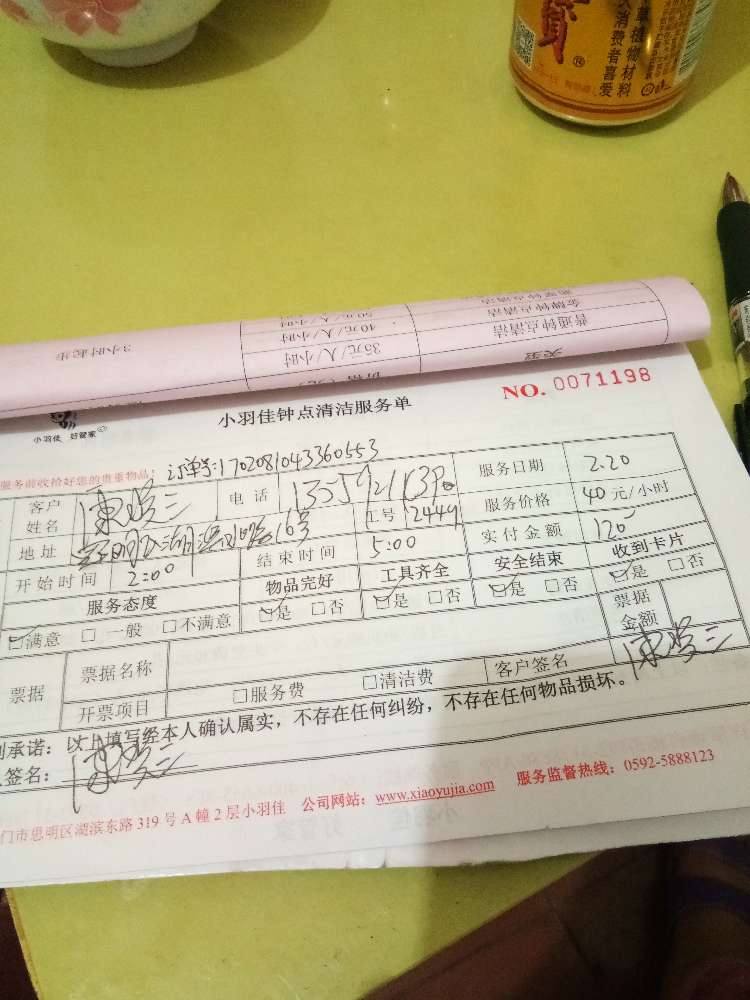 宝
®
草植物材料
消费者喜爱
3小时起步
40元/人/小时
35元/人/小时
金牌钟点清洁
普通钟点清洁
小羽佳 好管家
小羽佳钟点清洁服务单
NO. 0071198
服务前收捡好您的贵重物品!
订单号:1702081043360553
客户姓名
电话
服务日期
2.20
地址
16号
工号
12449
服务价格
40元/小时
开始时间
2:00
结束时间
5:00
实付金额
120
服务态度
物品完好
工具齐全
安全结束
收到卡片
☑满意 □ 一般 □不满意
☑是 □否
☑是 □否
☑是 □否
☑是 □否
票据
票据名称
票据金额
开票项目
□服务费 □清洁费
客户签名
承诺:以上填写经本人确认属实,不存在任何纠纷,不存在任何物品损坏。
签名:
门市思明区湖滨东路 319 号 A 幢 2 层小羽佳 公司网站:www.xiaoyujia.com 服务监督热线:0592-5888123